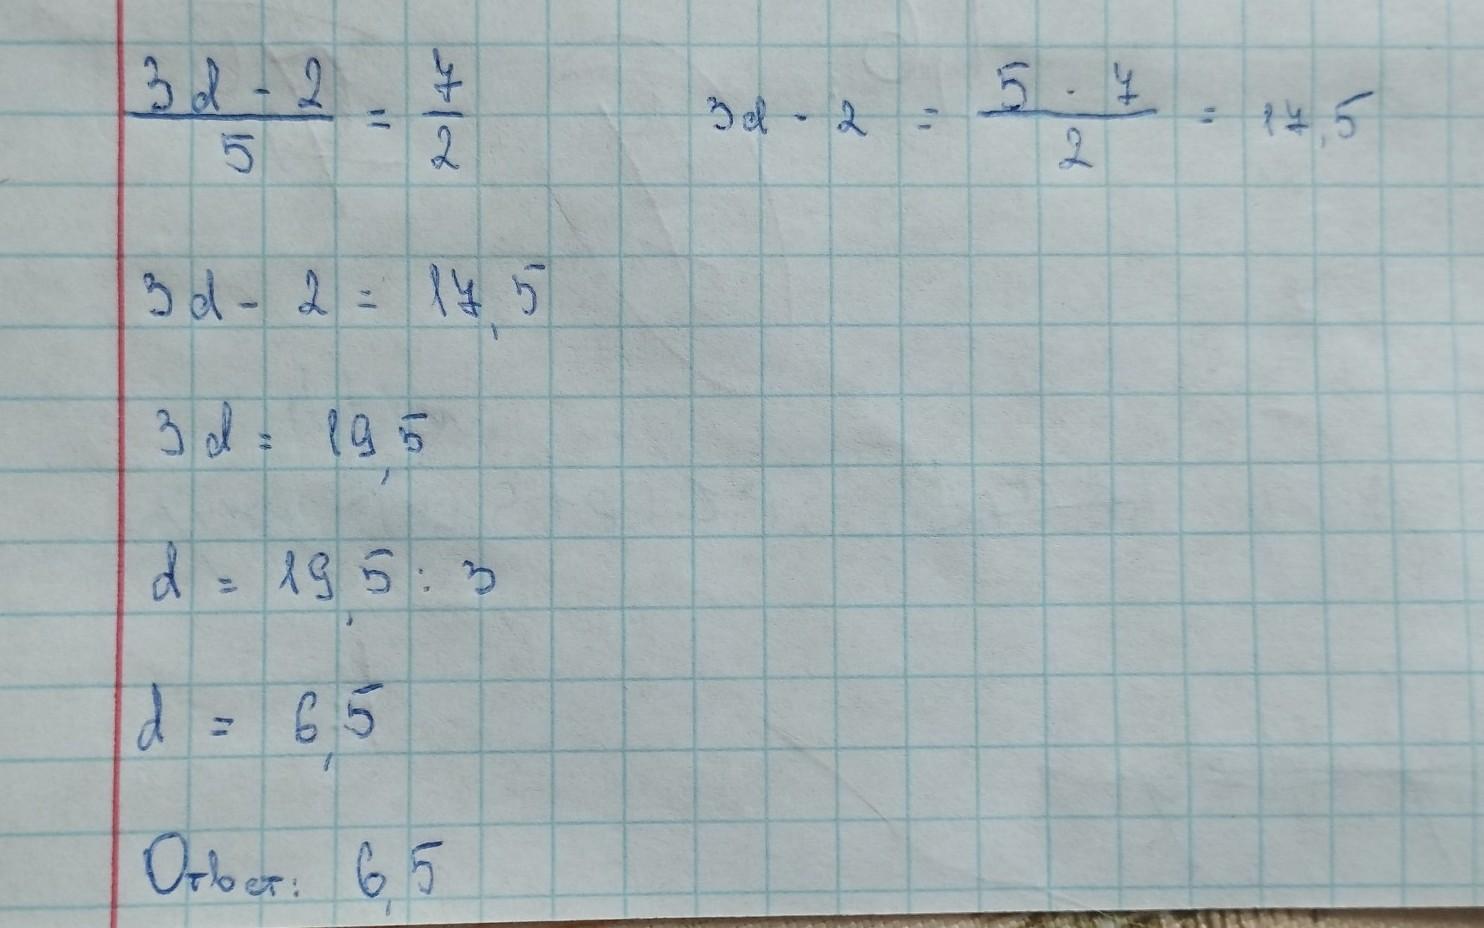 (3d - 2)/5 = 7/2
3d - 2 = (5 · 7)/2 = 17,5
3d - 2 = 17,5
3d = 19,5
d = 19,5 : 3
d = 6,5
Ответ: 6,5